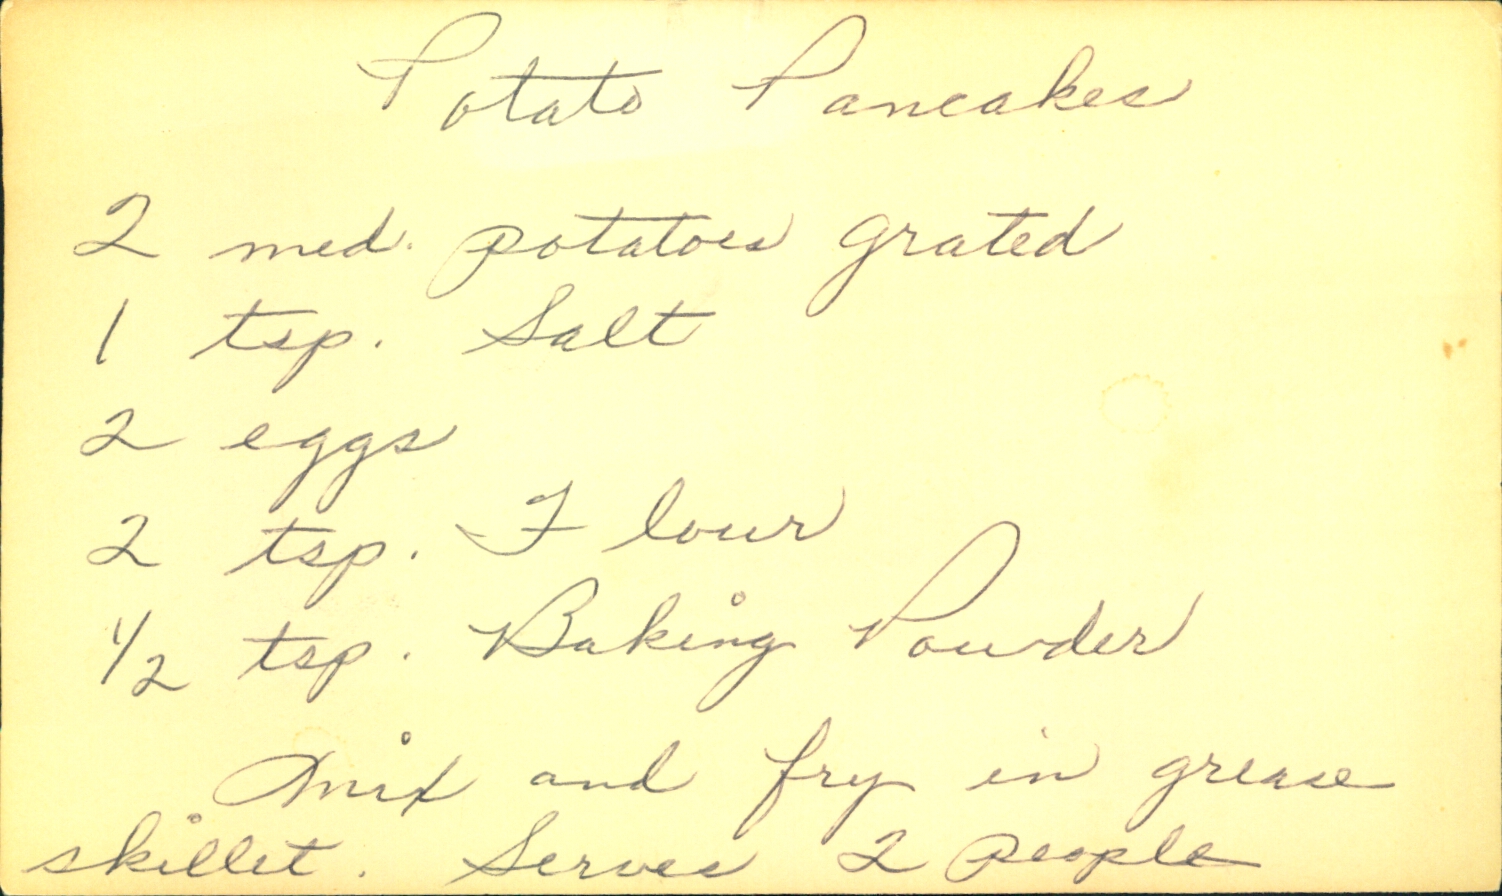 Potato Pancakes
2 med. potatoes grated
1 tsp. Salt
2 eggs
2 tsp. Flour
1/2 tsp. Baking Powder
Mix and fry in grease
skillet. Serves 2 people